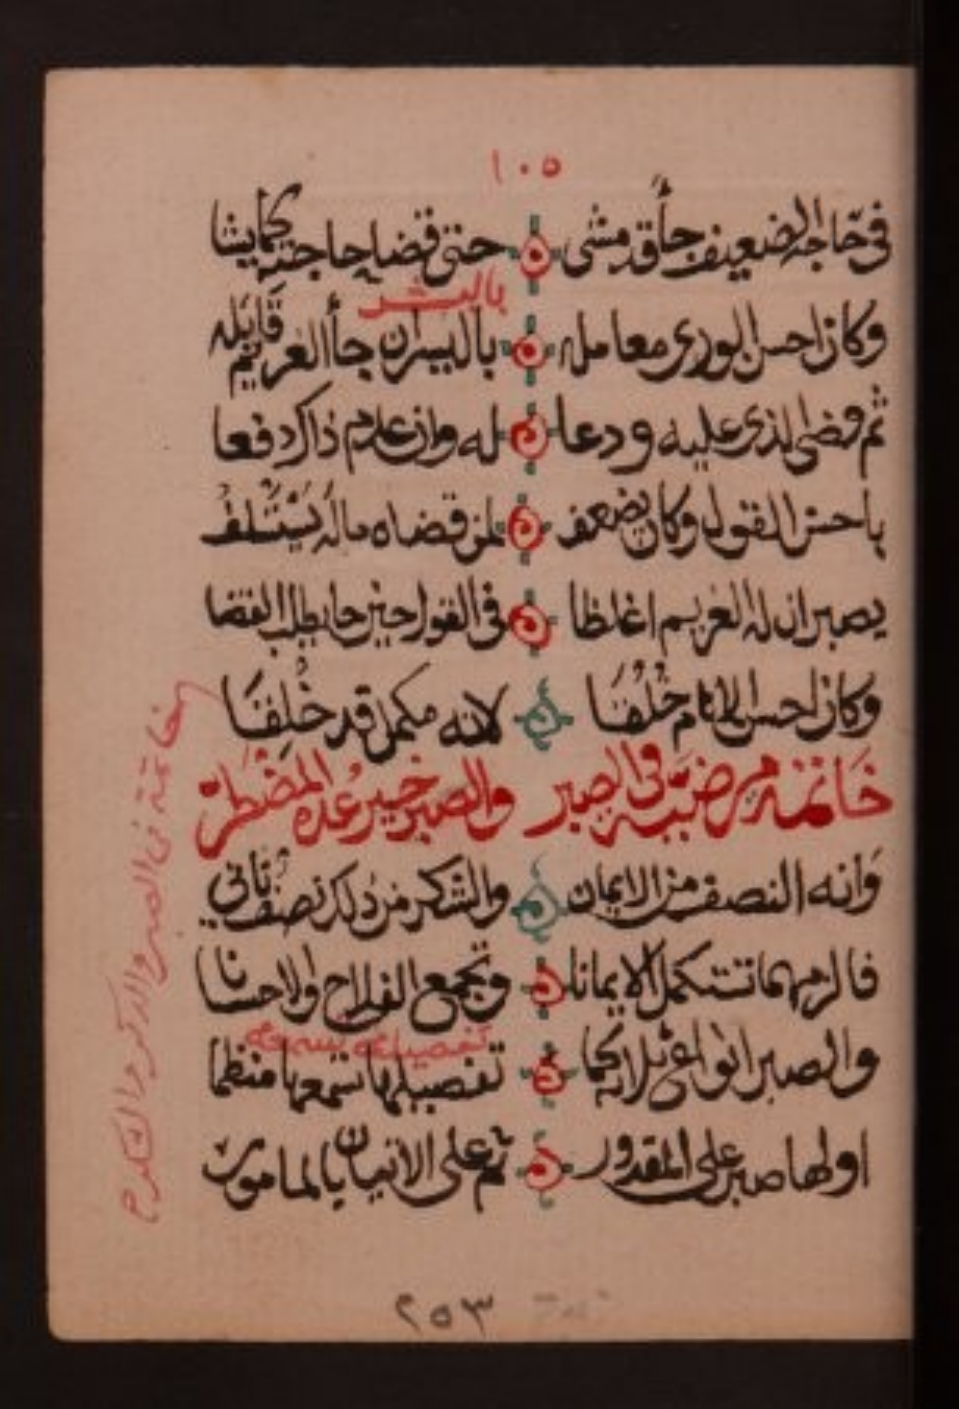 ١٠٥
في حاجة الضعيف جأ قد مشى حتى قضا حاجته كما يشا
بالبشر
وكان احسن الورى معامله بالبسران جأ الغريم قابله
ثم قضى الذى عليه ودعا له وان عادم ذاك دفعا
باحسن القول وكان يضعف لمن قضاه ماله يستلف
يصبر ان له الغريم اغلظا في القول حين جا يطلب القضا
وكان احسن الانام خُلُقَا لانه مكمل قد خُلِقَا
خَاتمة مرضية في الصبر والصبر خير عدة المضطر
وانه النصف من الايمان والشكر من ذلك نصف ثاني
فالزمهما تستكمل الايمانا وتجمع الفلاح والاحسانا
تفصيلها
والصبر انواع ثلاثة كما تفصيلها تسمعها منظما
اولها صبر على المقدور ثم على الاتيان بالمامور
خاتمة في الصبر والذكر والشكر
٢٥٣